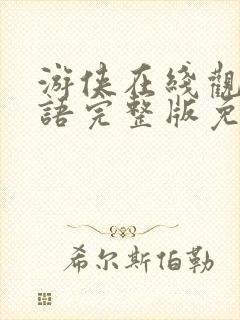 游侠在綫觀
語完整版免
希尔斯伯勒